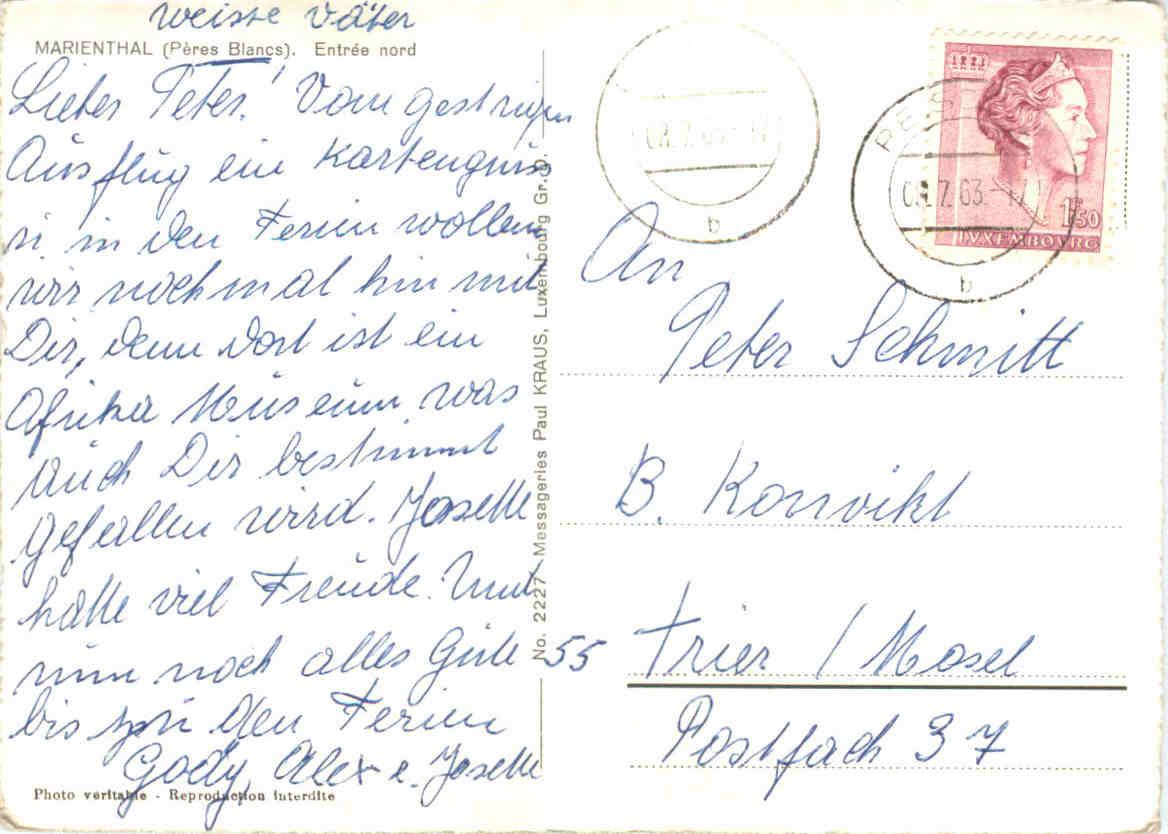 weisse Väter
MARIENTHAL (Pères Blancs). Entrée nord
Lieber Peter! Vom gestrigen
Ausflug ein Kartengruss
in den Ferien wollen
wir nochmal hin mit
Dir, denn dort ist ein
Afrika Museum was
auch Dir bestimmt
gefallen wird. Josette
hatte viel Freude. Und
nun noch alles Gute
bis zu den Ferien
Gody, Alex e. Josette
Photo veritable - Reproduction interdite
No. 2227 - Messageries Paul KRAUS, Luxembourg Gr. D.
b
63
b
1F50
LVXEMBOVRG
An
Peter Schmitt
B. Konvikt
55 Trier / Mosel
Postfach 37